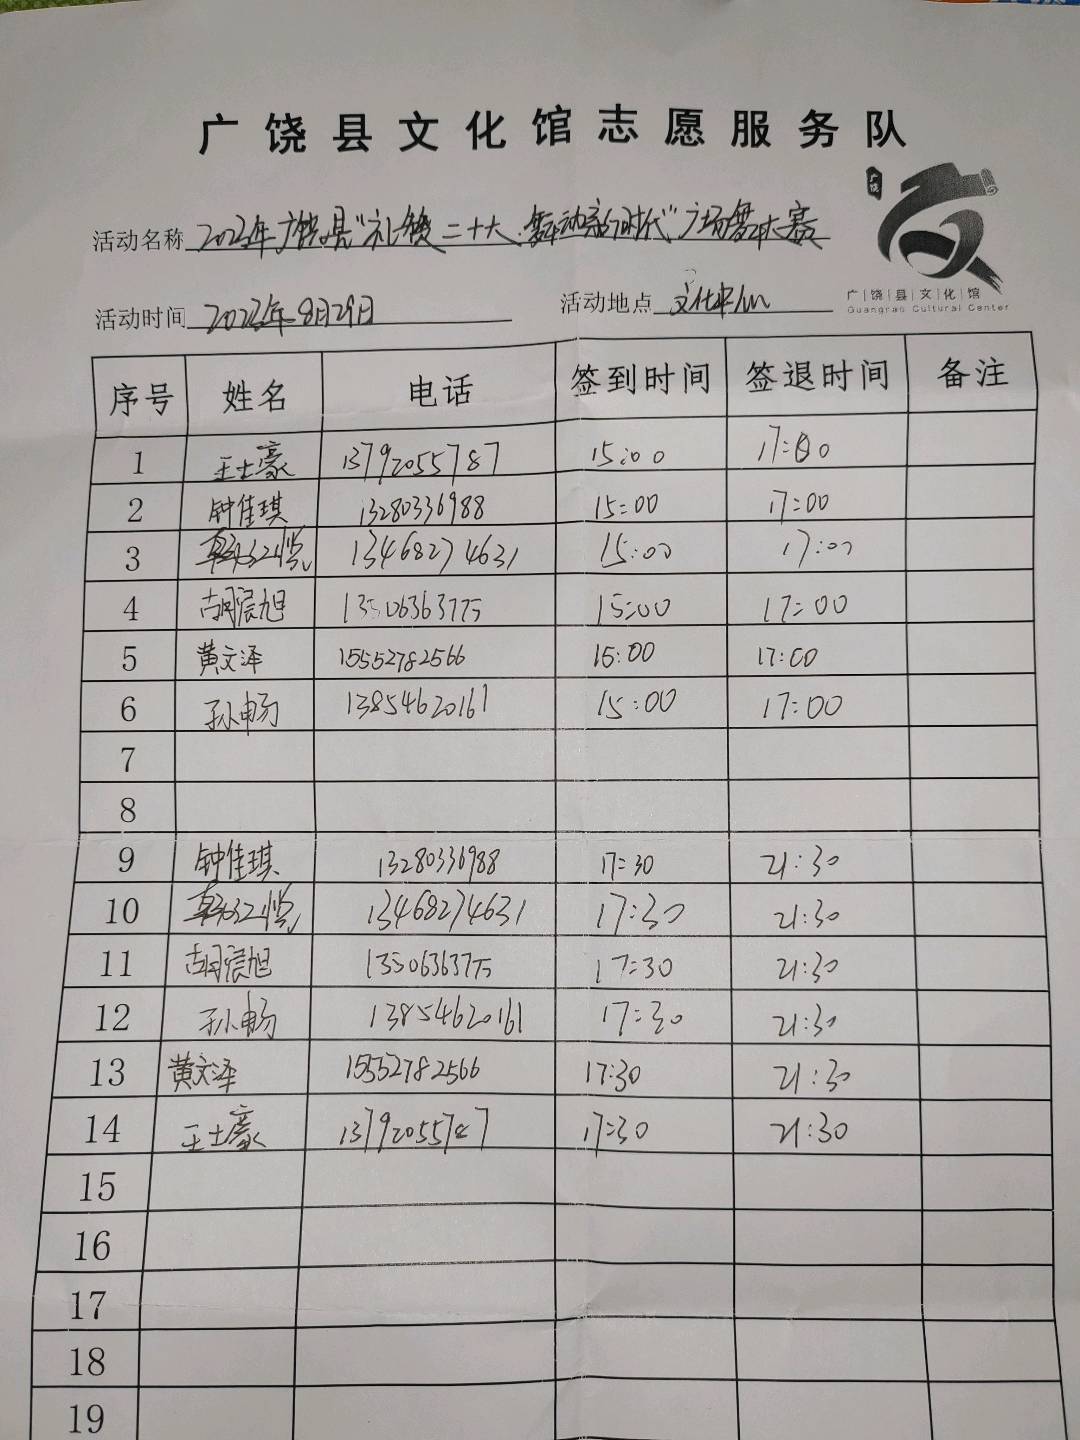 广饶县文化馆志愿服务队
广饶
活动名称 2022年广饶县"礼赞二十大·舞动新时代"广场舞大赛
活动时间 2022年8月29日 活动地点 文化中心
广饶县文化馆
Guangrao Cultural Center
序号 姓名 电话 签到时间 签退时间 备注
1 王士豪 13792055787 15:00 17:00
2 钟佳琪 13280336988 15:00 17:00
3 13468274631 15:00 17:00
4 胡宸旭 13506363775 15:00 17:00
5 黄文泽 15552782566 15:00 17:00
6 孙畅 13854620161 15:00 17:00
7
8
9 钟佳琪 13280336988 17:30 21:30
10 13468274631 17:30 21:30
11 胡宸旭 13506363775 17:30 21:30
12 孙畅 13854620161 17:30 21:30
13 黄文泽 15552782566 17:30 21:30
14 王士豪 13792055787 17:30 21:30
15
16
17
18
19